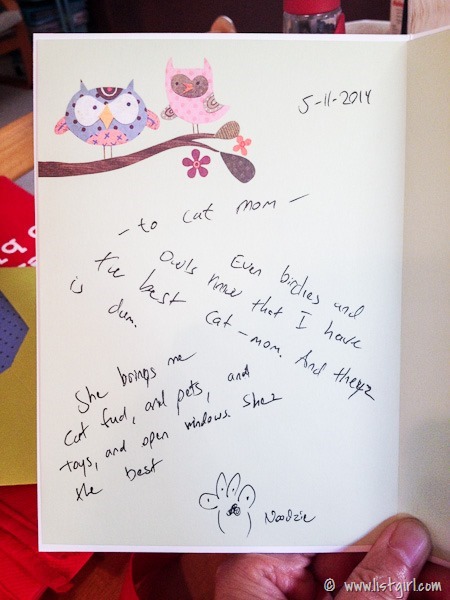 5-11-2014
- to cat mom -
Even birdies and
Owls know that I have
the best cat-mom. And theyz
is dum.
She brings me
cat fud, and pets, and
toys, and open windows. Shez
the best
Noodzie
© www.listgirl.com